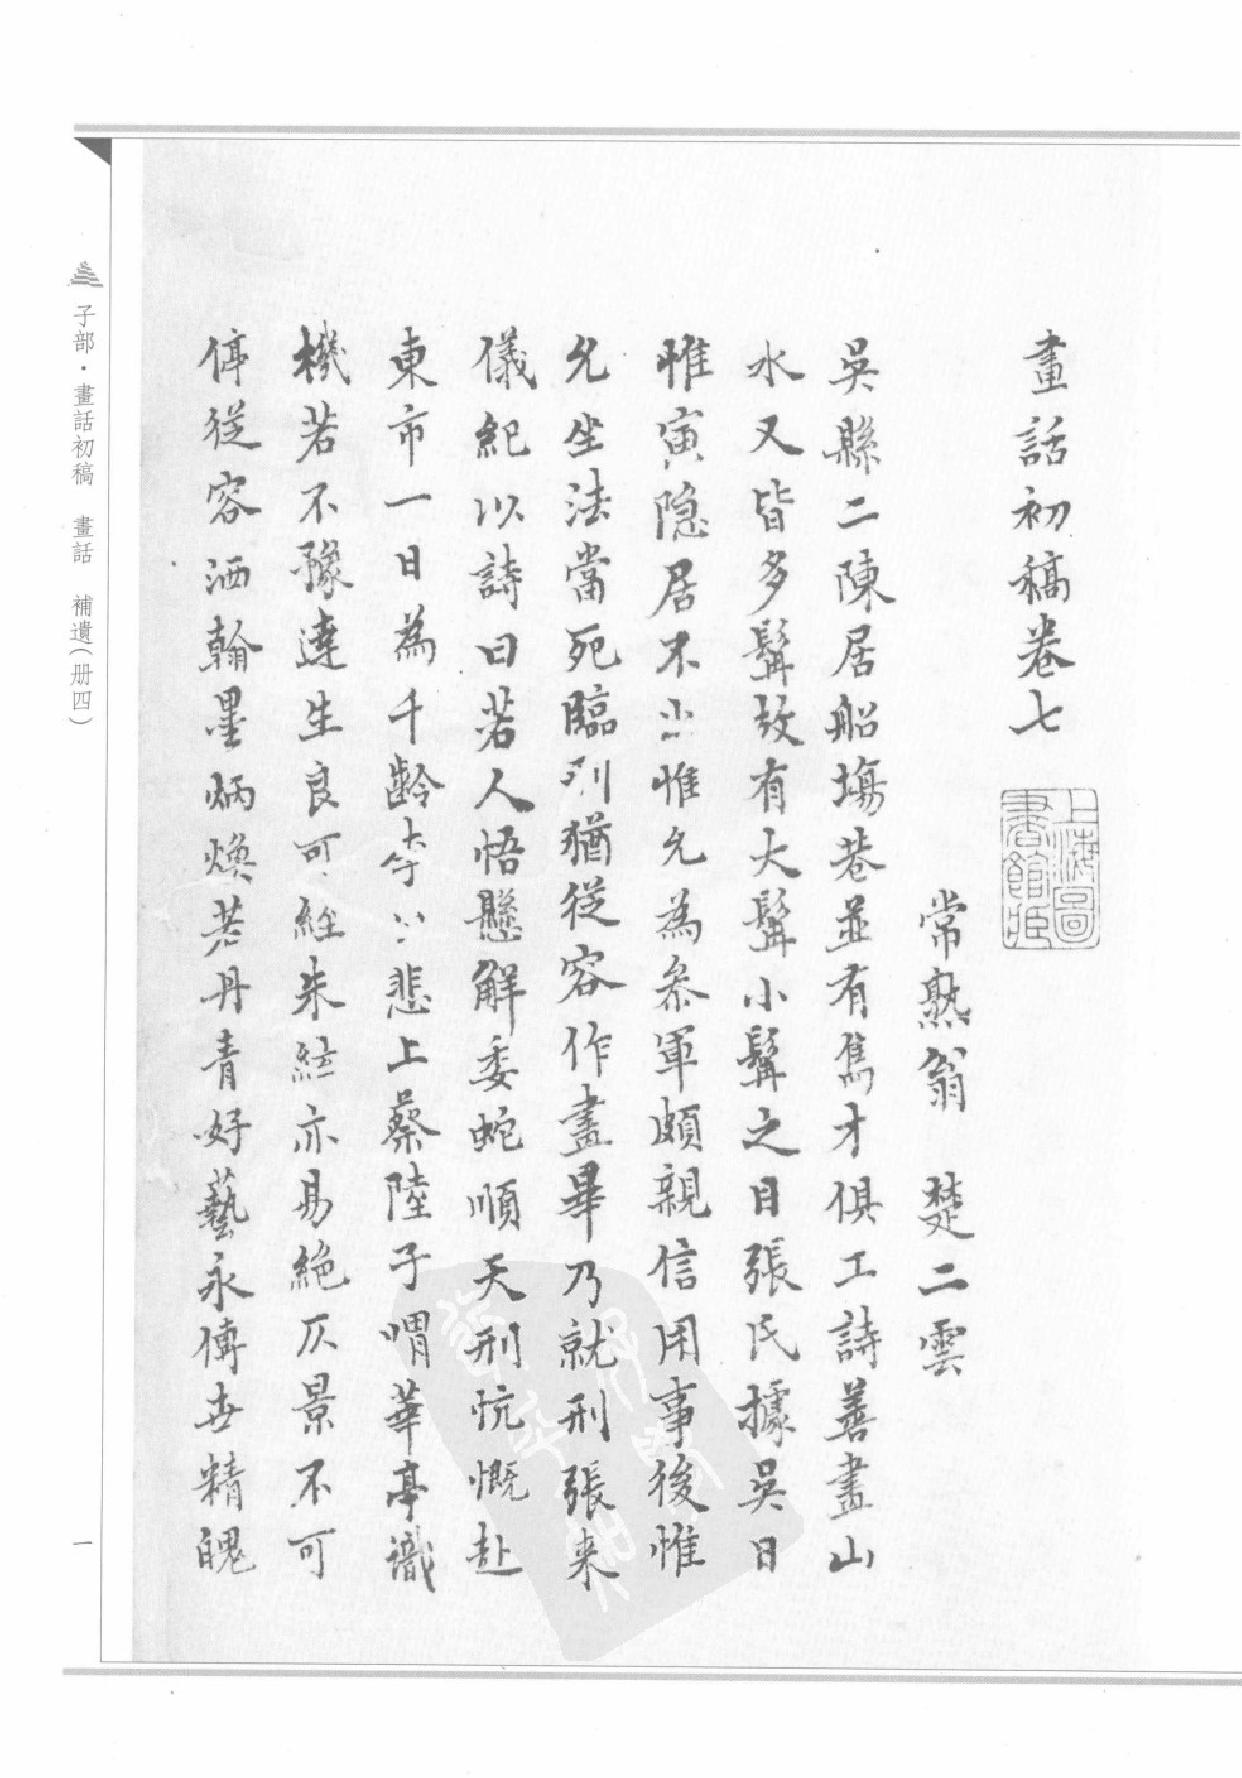 畫話初稿卷七
常熟翁 楚二雲
吳縣二陳居船塲巷並有雋才俱工詩善畫山
水又皆多髯故有大髯小髯之目張氏據吳日
惟寅隐居不出惟允為叅軍頗親信用事後惟
允坐法當死臨刑猶從容作畫畢乃就刑張来
儀紀以詩曰若人悟懸解委蛇順天刑忼慨赴
東市一日為千齡 悲上蔡陸子喟華亭識
機若不豫達生良可經朱絃亦易絶仄景不可
停從容洒翰墨炳煥若丹青好藝永傳世精魄
上海圖書館藏
子部·畫話初稿 畫話 補遺（册四）
一